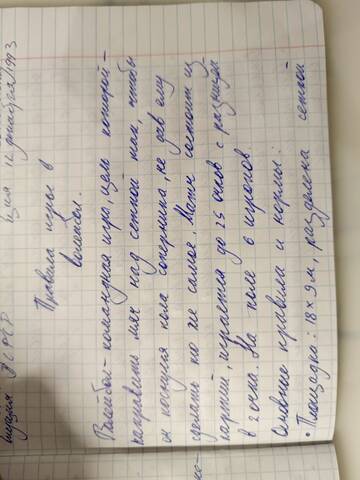 ция 12 декабря 1993
Правила игры в
волейбол.
Волейбол – командная игра, цель которой –
направить мяч над сеткой так, чтобы
он коснулся пола соперника, не дав ему
сделать то же самое. Матч состоит из
партий, играется до 25 очков с разницей
в 2 очка. На поле 6 игроков
Основные правила и нормы:
• Площадка: 18 × 9 м, разделена сеткой